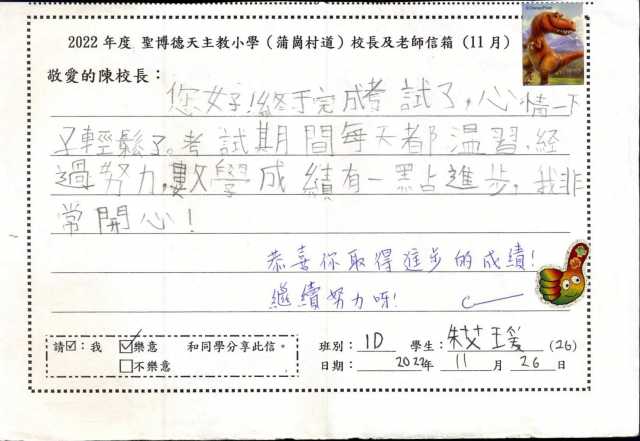 2022 年度 聖博德天主教小學（蒲崗村道）校長及老師信箱（11 月）
敬愛的陳校長：
您好！終于完成考試了，心情一下
子輕鬆了。考試期間每天都溫習，經
過努力，數學成績有一點進步，我非
常開心！
恭喜你取得進步的成績！
繼續努力呀！
請☑：我 ☑樂意 和同學分享此信。
□不樂意
班別： 1D 學生： 朱芷瑤 (26)
日期： 2022年 11 月 26 日